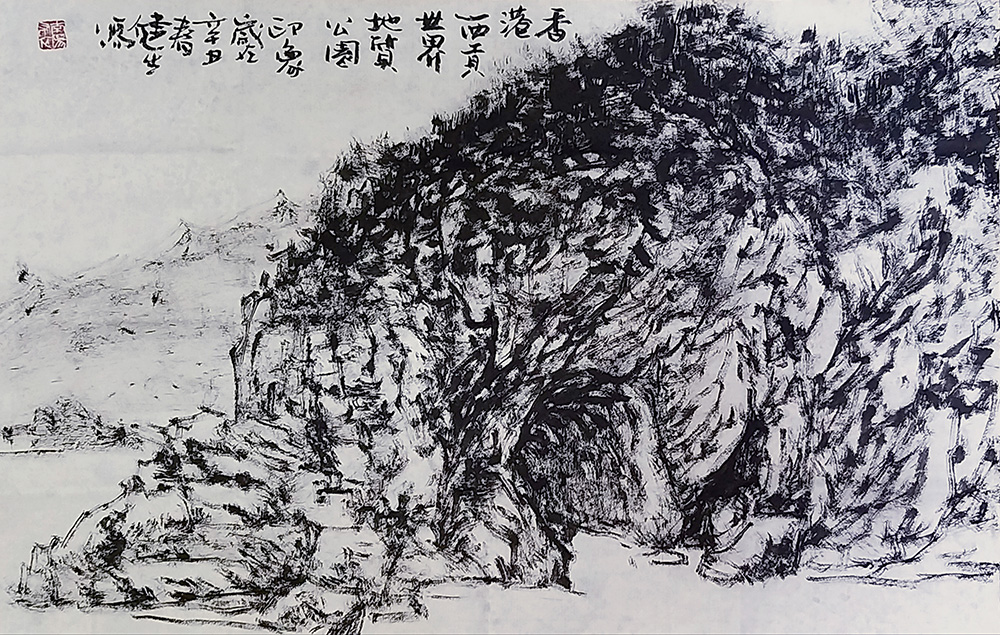 香港
西貢
世界
地質
公園
印象
歲次
辛丑
春
健生
寫